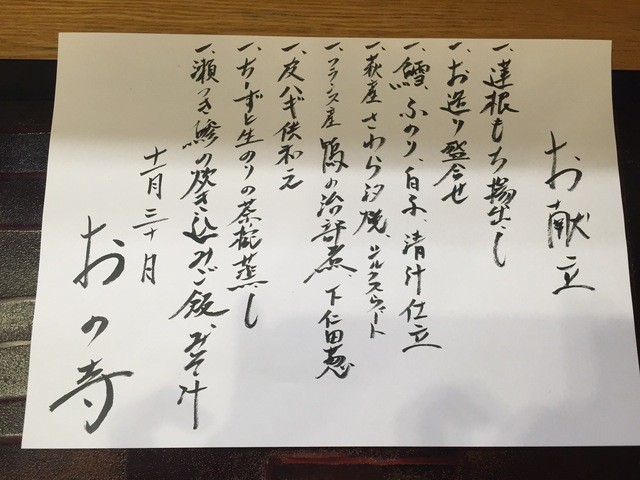 お献立
一、蓮根もち揚出し
一、お造り盛合せ
一、鱈、ふのり、白子、清汁仕立
一、萩産さわら汐焼、
一、フランス産 鴨の治部煮 下仁田葱
一、皮ハギ供和え
一、ちーずと生のりの茶椀蒸し
一、瀬つき鯵の炊き込みご飯、みそ汁
十一月三十日
おの寺